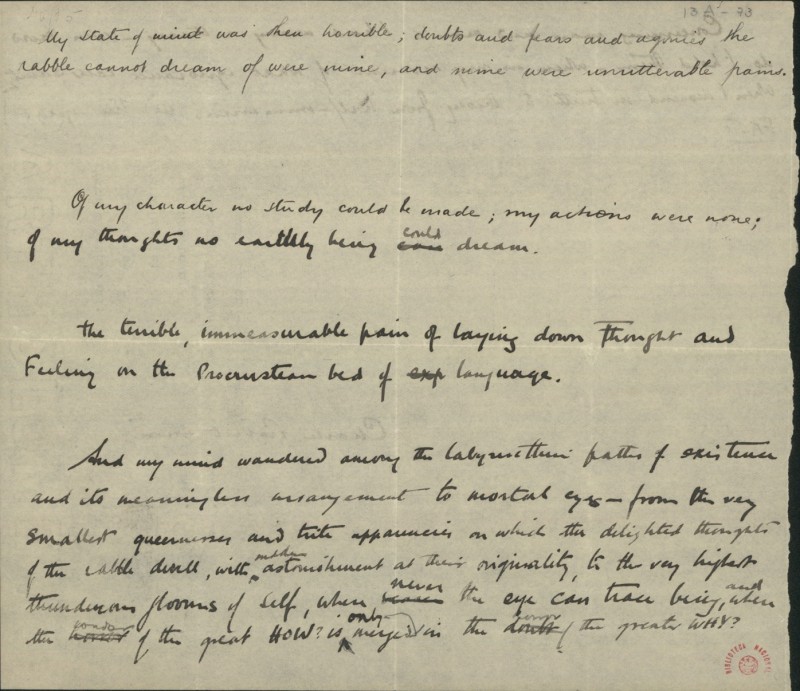 13A-73
My state of mind was then horrible; doubts and fears and agonies the
rabble cannot dream of were mine, and mine were unutterable pains.
Of my character no study could be made; my actions were none;
of my thoughts no earthly being could can dream.
The terrible, immeasurable pain of laying down Thought and
Feeling on the Procrustean bed of exp language.
And my mind wandered among the labyrinthine paths of existence
and its meaningless arrangement to mortal eyes — from the very
smallest queernesses and trite apparencies on which the delighted thoughts
of the rabble dwell, with sudden astonishment at their originality, to the very highest
thunderous glooms of Self, where never the eye can trace being, and when
the horror of the great HOW? is only merged in the horror doubt of the greater WHY?
BIBLIOTECA NACIONAL